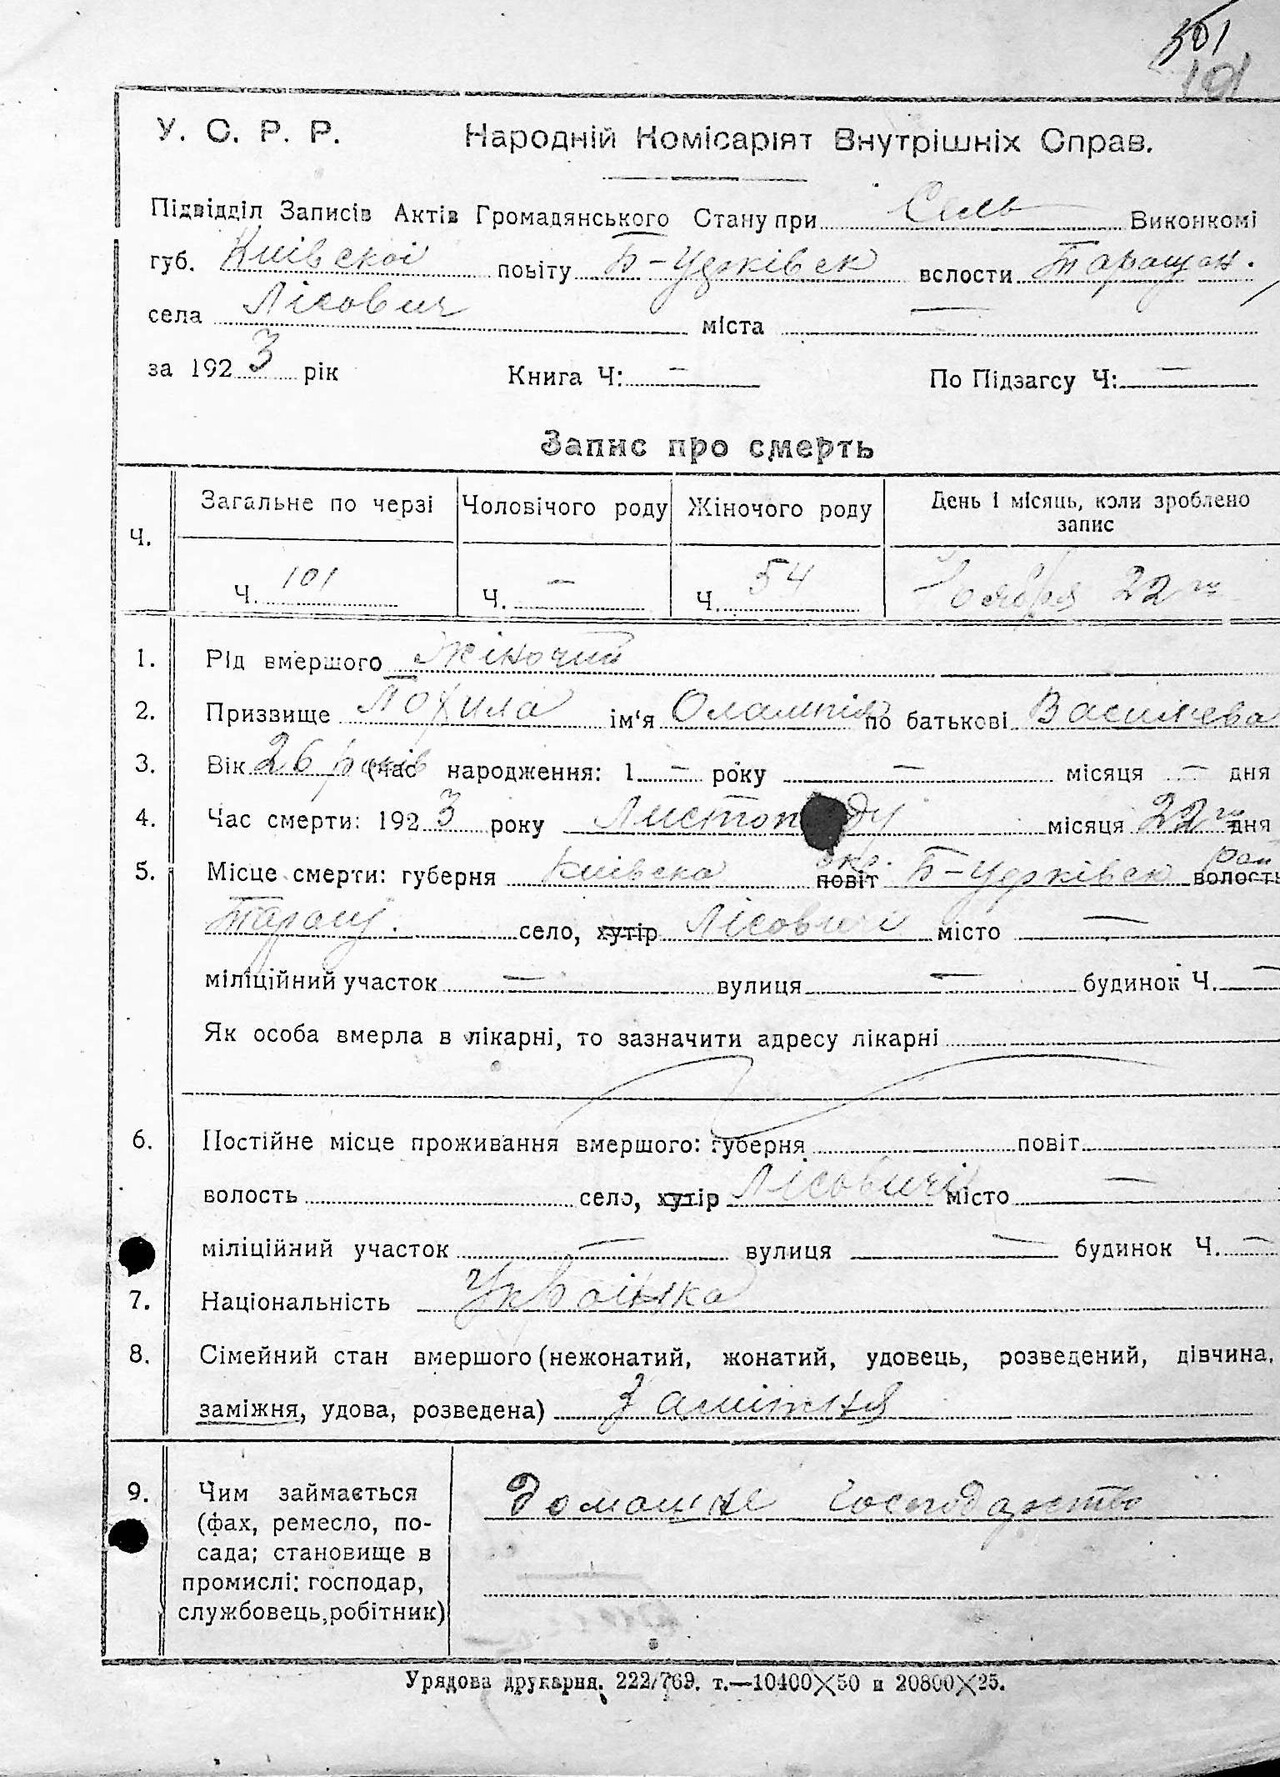 301
101
У. С. Р. Р. Народній Комісаріят Внутрішніх Справ.
Підвідділ Записів Актів Громадянського Стану при Сель Виконкомі
губ. Київскої повіту Б-Церківск вслости Таращан.
села Лісович міста —
за 1923 рік Книга Ч: — По Підзагсу Ч: —
Запис про смерть
Ч. Загальне по черзі Чоловічого роду Жіночого роду День і місяць, коли зроблено запис
Ч. 101 Ч. — Ч. 54 Ноября 22го
1. Рід вмершого Жіночий
2. Призвище Похила ім'я Олампія по батькові Василева
3. Вік 26 років (час народження: 1 — року — місяця — дня
4. Час смерти: 1923 року Листопаду місяця 22го дня
5. Місце смерти: губерня Київска окр. повіт Б-Церківск рай волость
Таращ. село, хутір Лісовичі місто —
міліційний участок — вулиця — будинок Ч. —
Як особа вмерла в лікарні, то зазначити адресу лікарні
6. Постійне місце проживання вмершого: губерня повіт
волость село, хутір Лісовичі місто —
міліційний участок — вулиця — будинок Ч. —
7. Національність Українка
8. Сімейний стан вмершого (нежонатий, жонатий, удовець, розведений, дівчина,
заміжня, удова, розведена) Заміжня
9. Чим займається Домашнє господарство
(фах, ремесло, по-
сада; становище в
промислі: господар,
службовець, робітник)
Урядова друкарня. 222/769. т.—10400×50 и 20800×25.